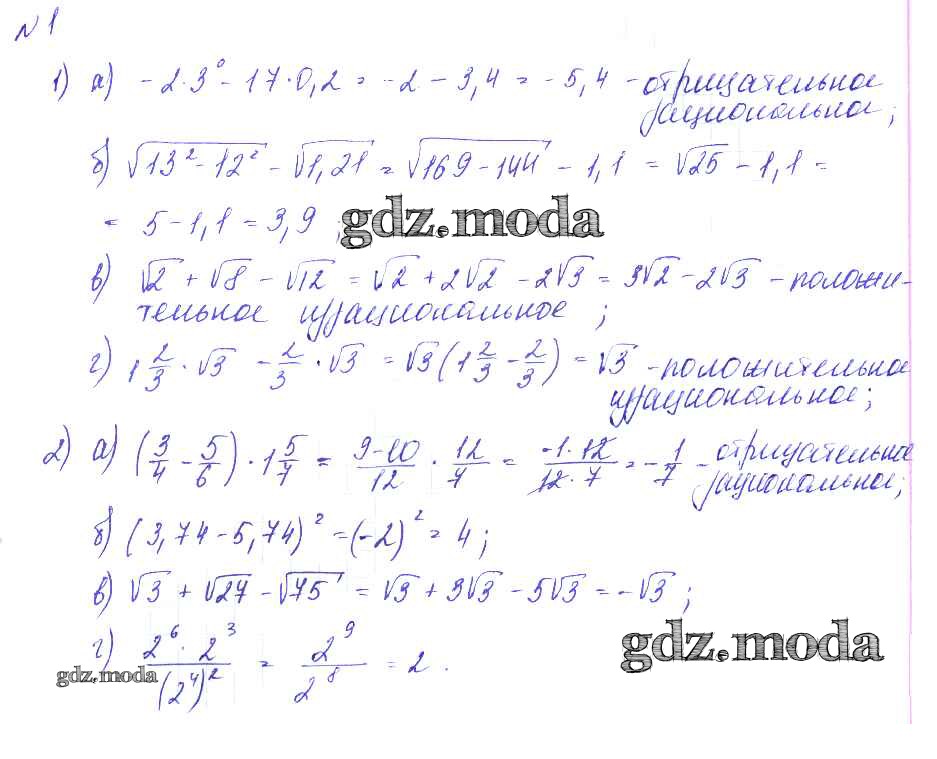 № 1
1) а) -2·3⁰ - 17·0,2 = -2 - 3,4 = -5,4 - отрицательное
рациональное;
б) √(13² - 12²) - √1,21 = √(169 - 144) - 1,1 = √25 - 1,1 =
= 5 - 1,1 = 3,9 ;
gdz.moda
в) √2 + √8 - √12 = √2 + 2√2 - 2√3 = 3√2 - 2√3 - положи-
тельное иррациональное ;
г) 1 2/3 · √3 - 2/3 · √3 = √3 (1 2/3 - 2/3) = √3 - положительное
иррациональное;
2) а) (3/4 - 5/6) · 1 5/7 = (9-10)/12 · 12/7 = (-1·12)/(12·7) = -1/7 - отрицательное
рациональное;
б) (3,74 - 5,74)² = (-2)² = 4 ;
в) √3 + √27 - √75 = √3 + 3√3 - 5√3 = -√3 ;
г) (2⁶ · 2³)/(2⁴)² = 2⁹/2⁸ = 2 .
gdz.moda
gdz.moda